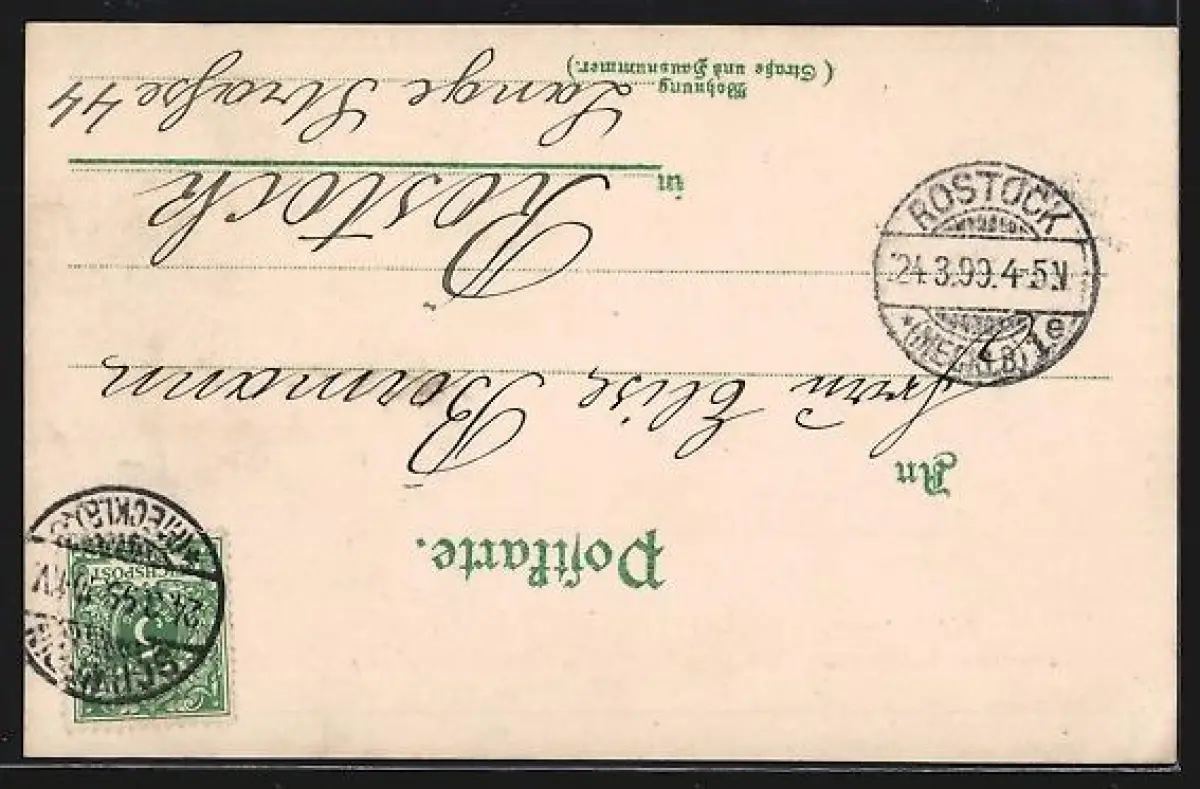 Postkarte.
REICHSPOST
5
SCHWERIN
24 3 99
(MECKLB)
An
Frau Elise Bormann
in Rostock
Wohnung
(Straße und Hausnummer.)
Lange Straße 44
ROSTOCK
24.3.99.4-5N
*(MECKLB)1e